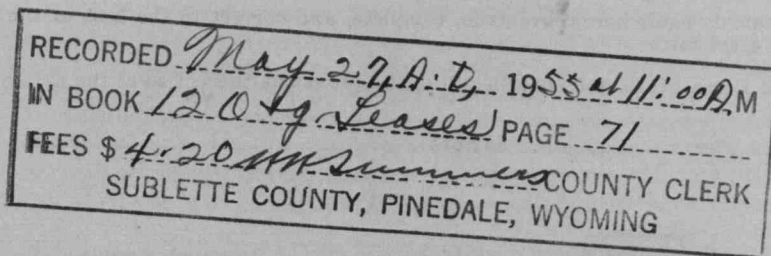 RECORDED May 27, A.D, 1955 at 11:00 A.M
IN BOOK 12 O & g Leases PAGE 71
FEES $ 4.20 Summers COUNTY CLERK
SUBLETTE COUNTY, PINEDALE, WYOMING